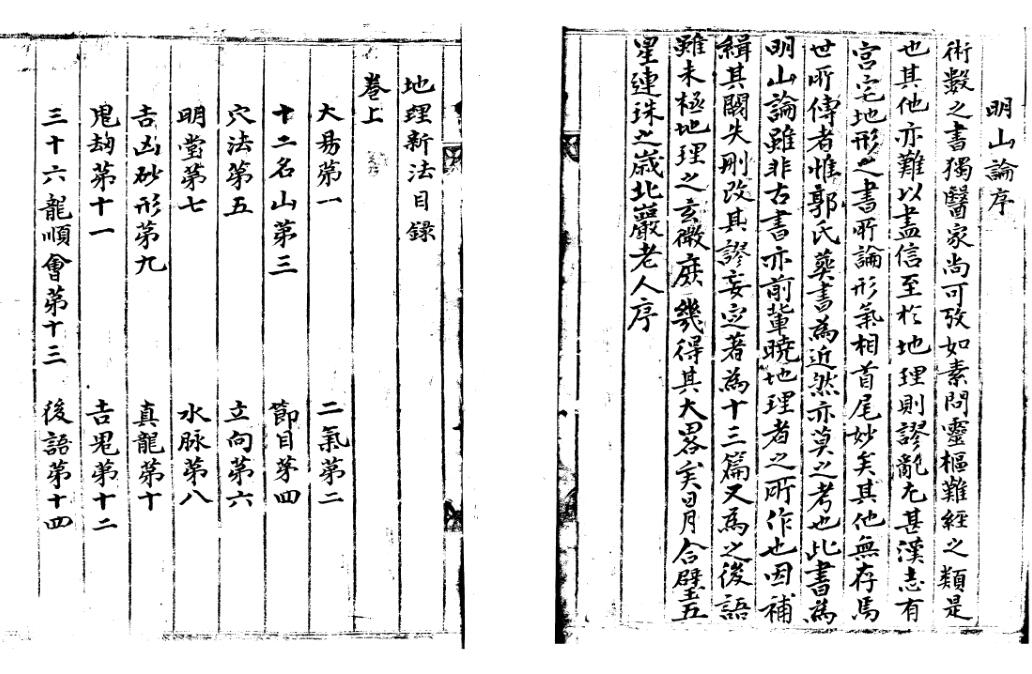 明山論序
術數之書獨醫家尚可攷如素問靈樞難經之類是
也其他亦難以盡信至扵地理則謬亂尤甚漢志有
宫宅地形之書所論形氣相首尾妙矣其他無存焉
世所傳者惟郭氏葬書為近然亦莫之考也此書為
明山論雖非古書亦前輩暁地理者之所作也因補
緝其闕失刪改其謬妄定著為十三篇又為之後語
雖未極地理之玄微庶幾得其大畧矣日月合璧五
星連珠之歲北巖老人序
地理新法目錄
卷上
大易苐一 二氣苐二
十二名山苐三 節目苐四
穴法苐五 立向苐六
明堂苐七 水脉苐八
吉凶砂形苐九 真龍苐十
鬼劫苐十一 吉鬼苐十二
三十六龍順會苐十三 後語苐十四